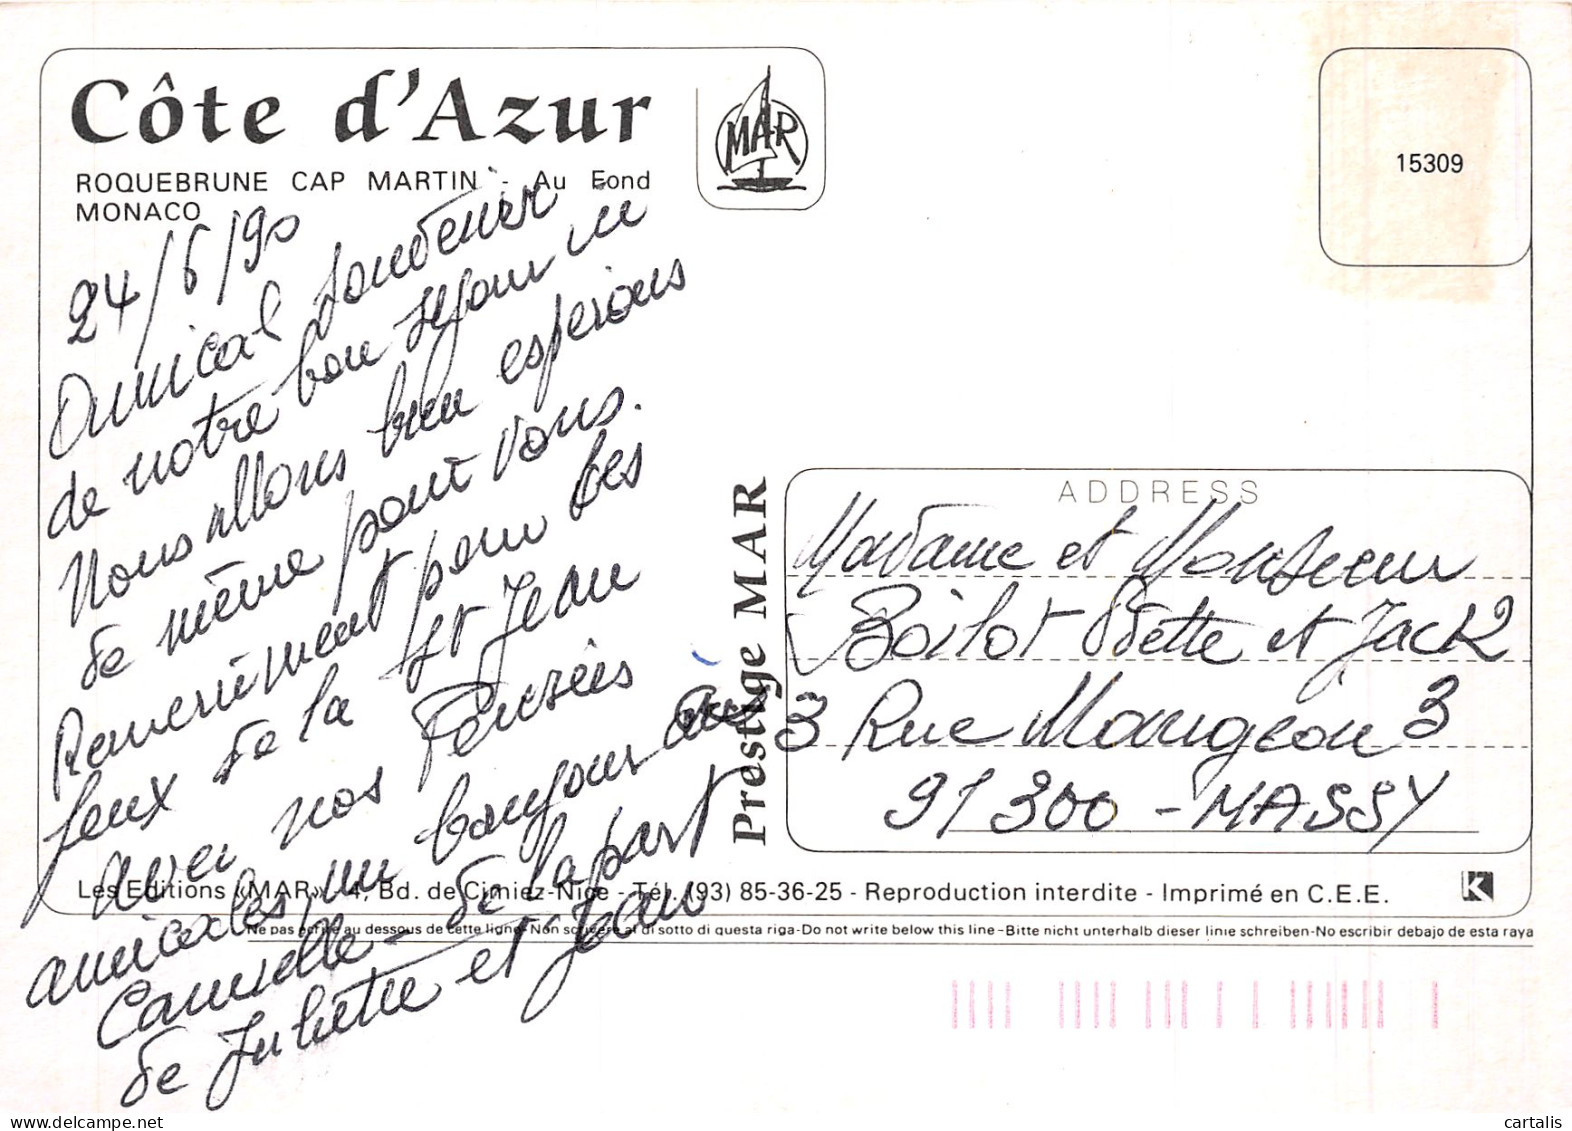 Côte d'Azur
ROQUEBRUNE CAP MARTIN - Au Fond
MONACO
MAR
15309
24/6/90
Amical souvenir
de notre bon séjour ici
Nous allons bien espérons
de même pour vous.
Remerciement pour les
feux de la St Jean
avec nos Pensées
amicales, un bonjour à
Camille - de la part
de Juliette et Jean
Prestige MAR
ADDRESS
Madame et Monsieur
Boilot Odette et Jack
3 Rue Mangeon 3
91300 - MASSY
Les Editions «MAR» 4, Bd. de Cimiez-Nice - Tél. (93) 85-36-25 - Reproduction interdite - Imprimé en C.E.E.
K
Ne pas écrire au dessous de cette ligne-Non scrivere al di sotto di questa riga-Do not write below this line-Bitte nicht unterhalb dieser linie schreiben-No escribir debajo de esta raya
cartalis